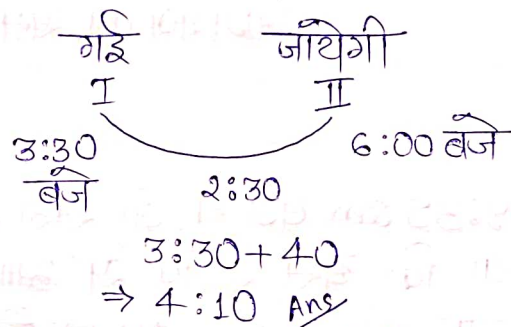 गई जायेगी
I II
3:30 बजे 6:00 बजे
2:30
3:30+40
⇒ 4:10 Ans